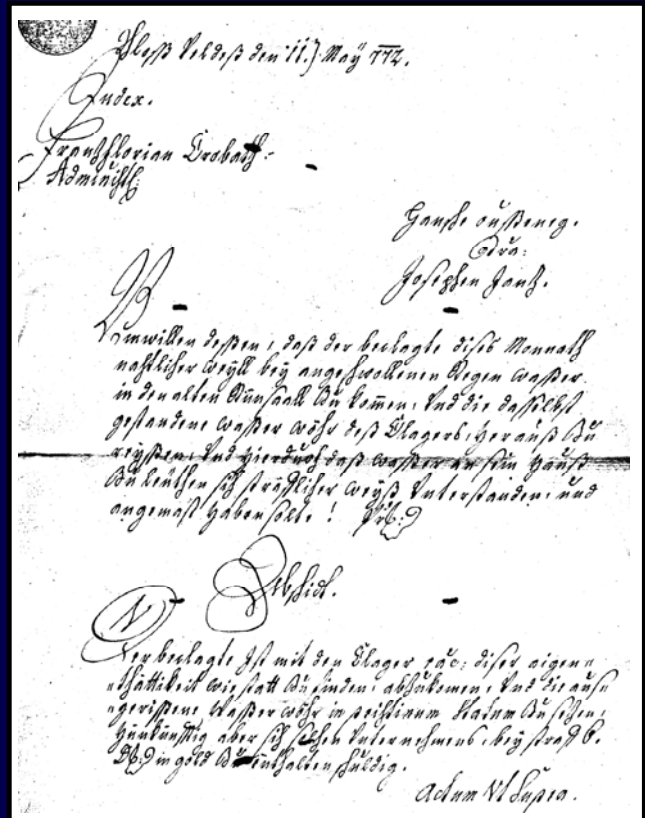 Schloß Veldeß den 11.) May 772.
Index.
Frantz Florian Crobath:
Administ:
Hansche
Cntra:
Josephen Jantz.
Umwillen dessen, daß der beclagte dises Monnath
nachtlicher weyll bey angeschwollenen Regen wasser
in den alten Runsaall zu komen, Und die dasselbst
gestandene wasser wöhr deß Clagers, herauß zu
reyssen, Und hierdurch daß wasser an sein Hauß
zu leüthen sich sträfflicher weyß Unterstanden, und
angemast haben solte!
Abschidt.
Der beclagte Ist mit den Clager diser aigen-
thättikeit wie statt zu finden, abzukomen, Und die aus-
gerissene Wasser wöhr in pristinum Statum zu sezen,
hinkünfftig aber sich solchen Unternehmens, bey straff 6.
in gold zu enthalten schuldig.
Actum Ut Supra.